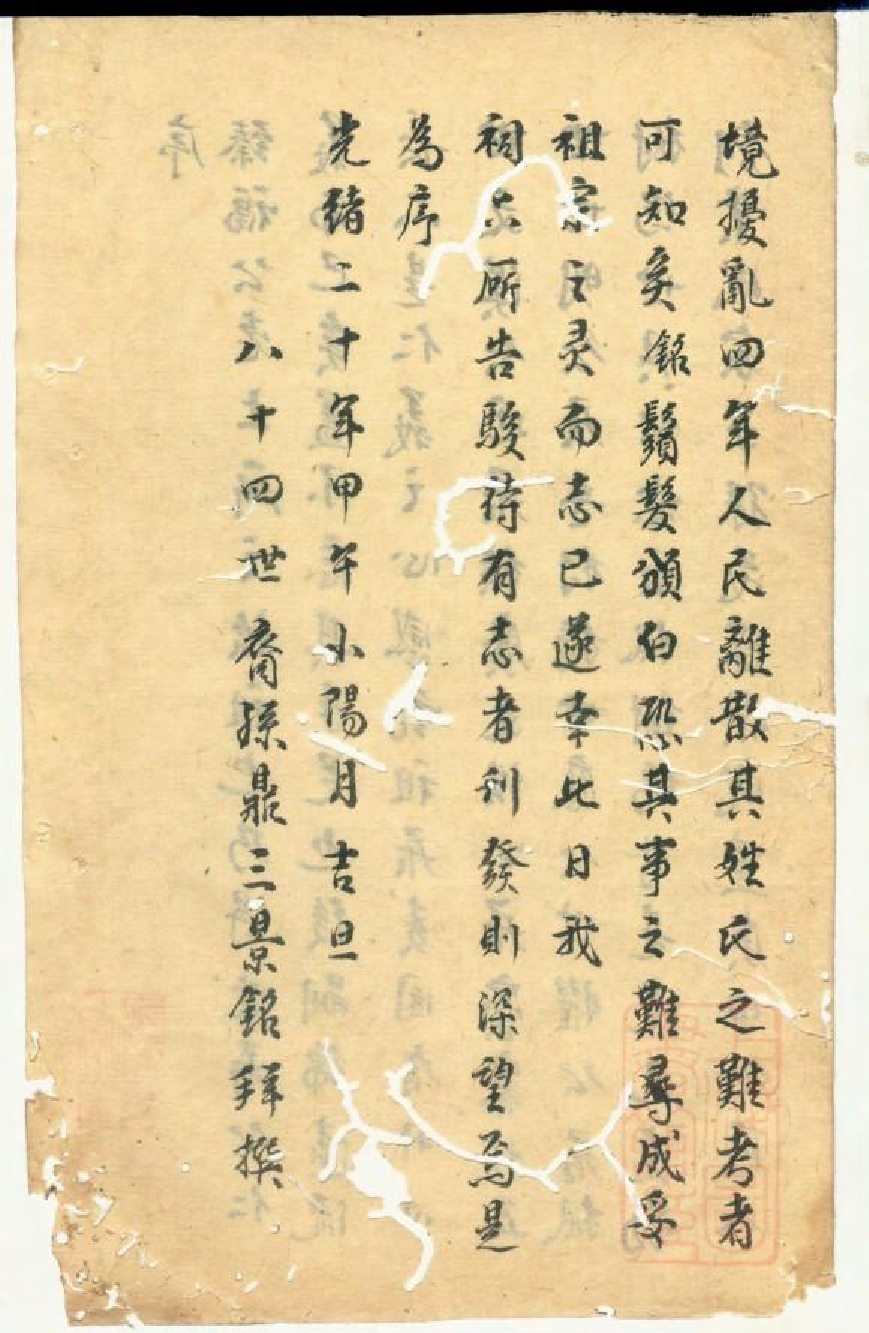 境擾亂四年人民離散其姓氏之難考者
可知矣銘鬚髮頒白恐其事之難尋成受
祖宗之灵而志已遂幸此日我
祠 所告駿待有志者刊發則深望焉是
為序
光緒二十年甲午小陽月吉旦
八十四世裔孫鼎三景銘拜撰